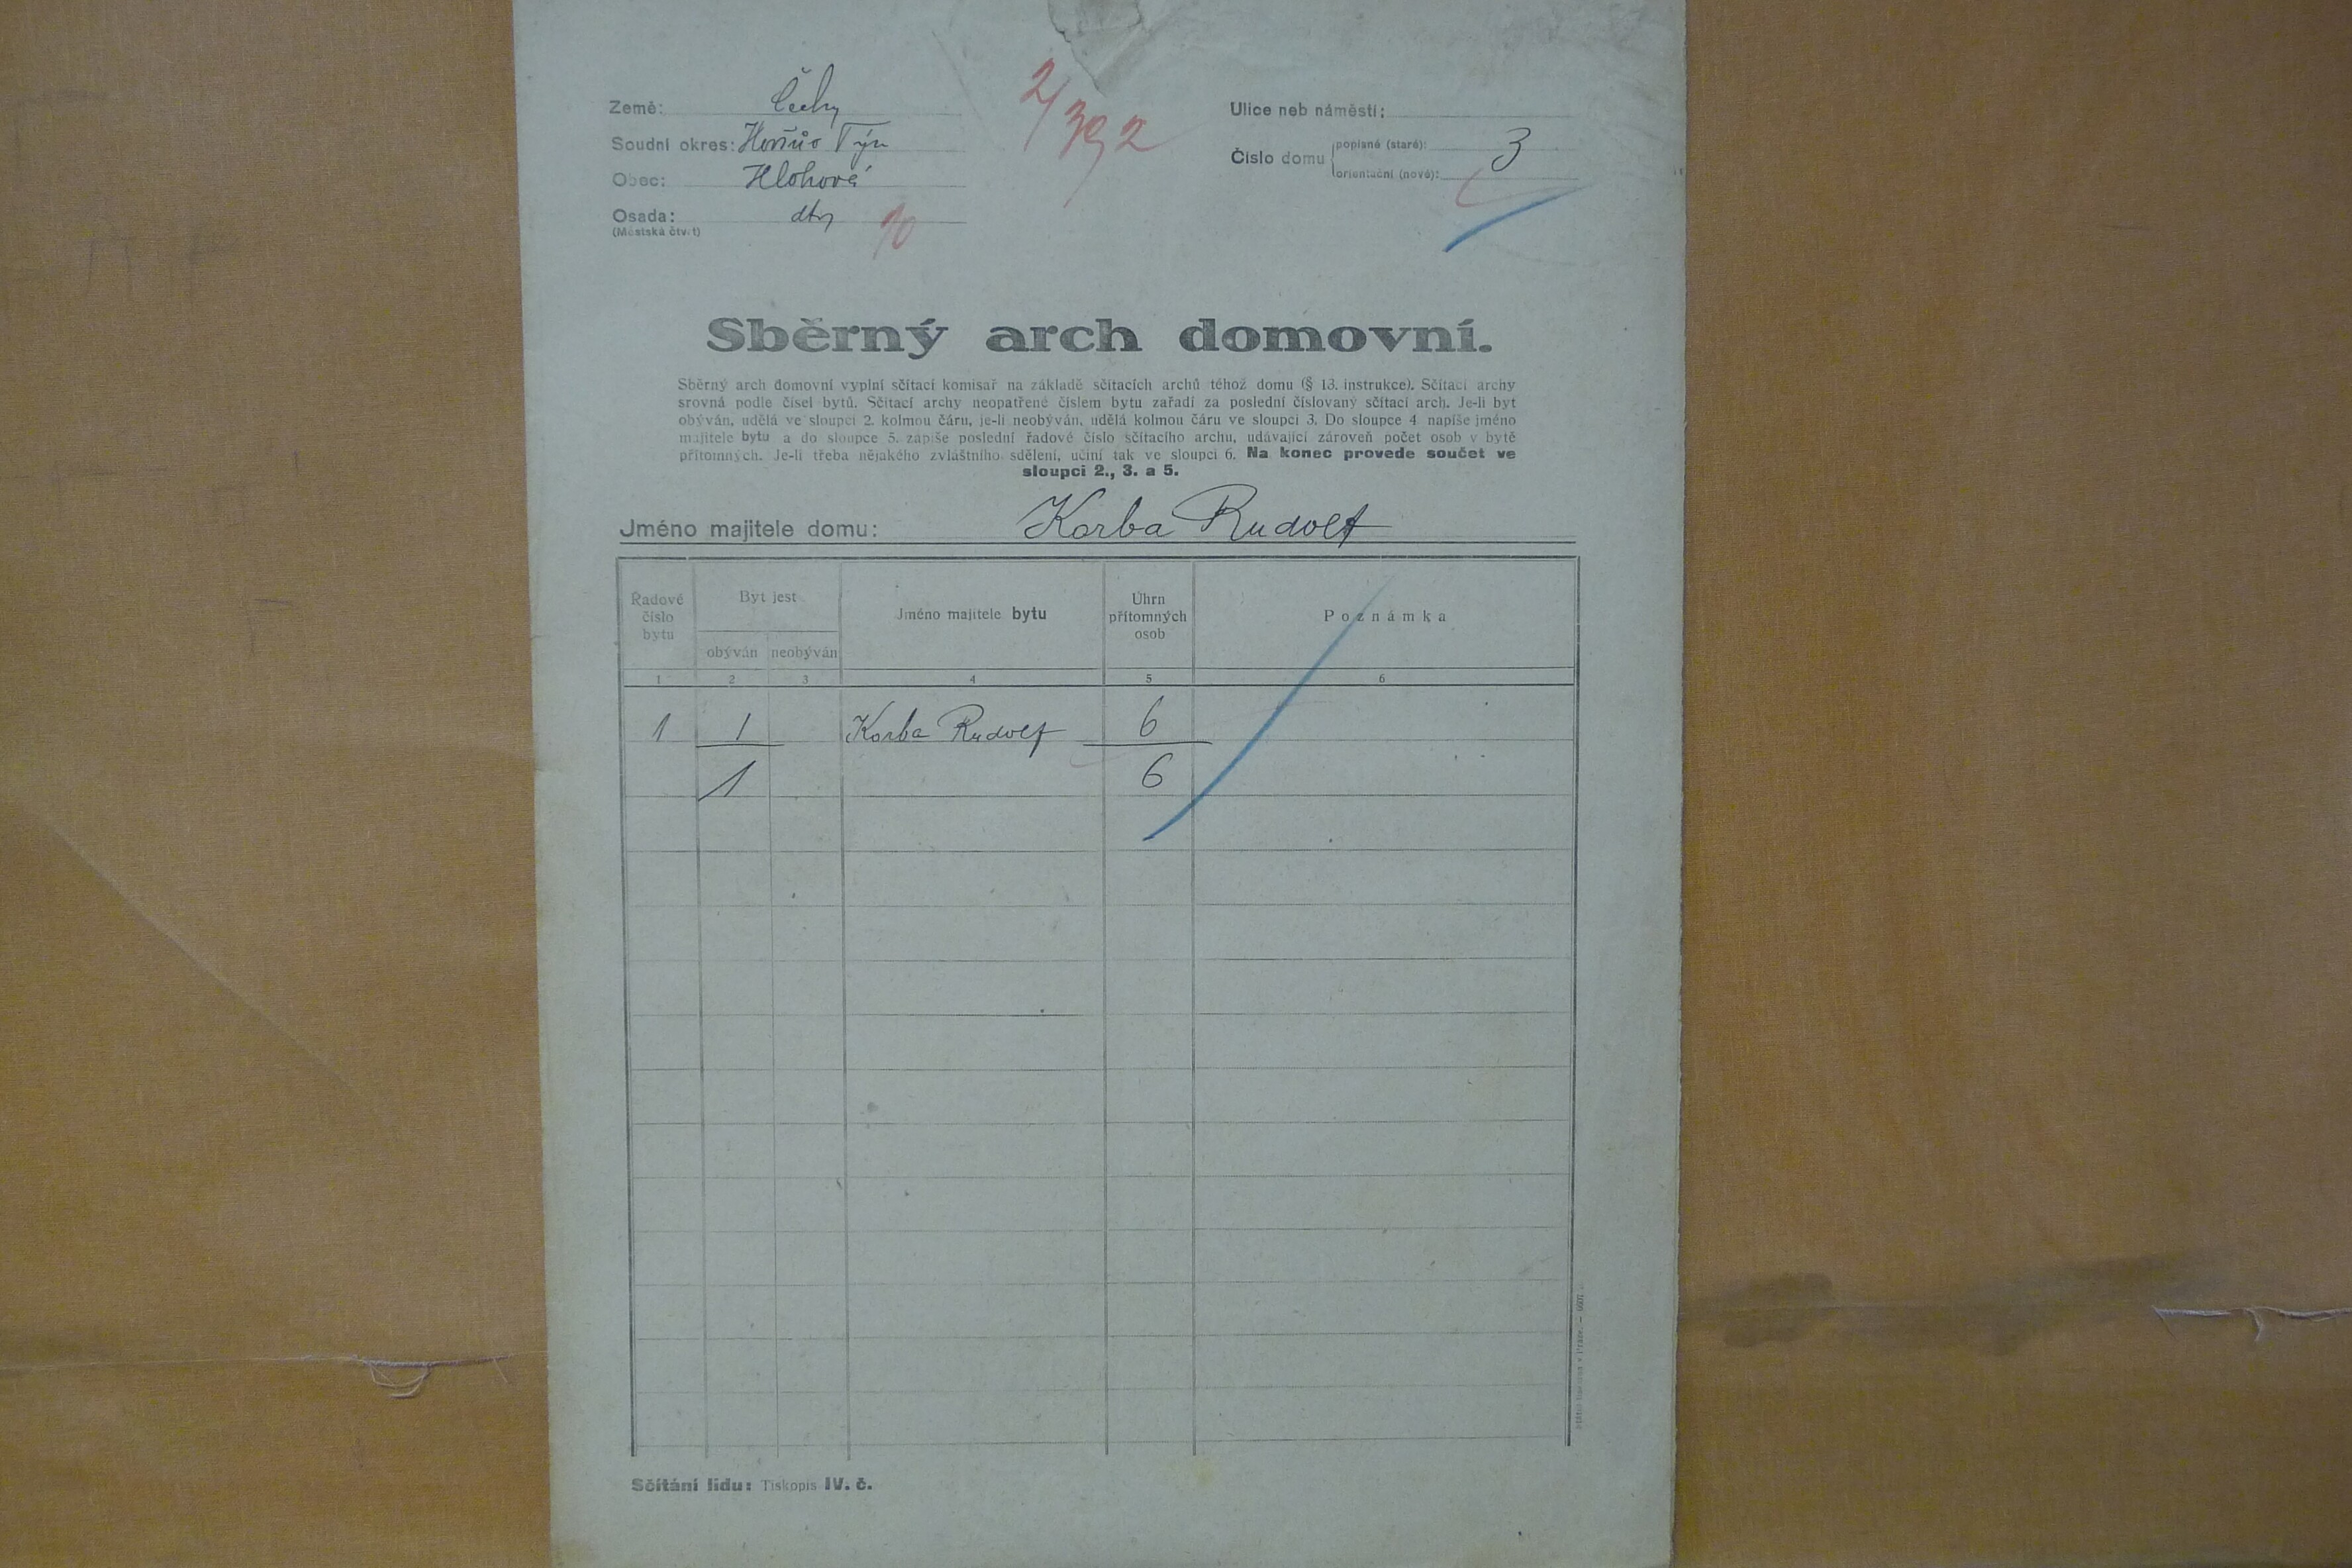 Země: Čechy
Soudní okres: Horšův Týn
Obec: Hlohová
Osada: dto
(Městská čtvrt)
10
2/392
Ulice neb náměstí:
Číslo domu
popisné (staré): 3
orientační (nové):
Sběrný arch domovní.
Sběrný arch domovní vyplní sčítací komisař na základě sčítacích archů téhož domu (§ 13. instrukce). Sčítací archy
srovná podle čísel bytů. Sčítací archy neopatřené číslem bytu zařadí za poslední číslovaný sčítací arch. Je-li byt
obýván, udělá ve sloupci 2. kolmou čáru, je-li neobýván, udělá kolmou čáru ve sloupci 3. Do sloupce 4 napíše jméno
majitele bytu a do sloupce 5. zapíše poslední řadové číslo sčítacího archu, udávající zároveň počet osob v bytě
přítomných. Je-li třeba nějakého zvláštního sdělení, učiní tak ve sloupci 6. Na konec provede součet ve
sloupci 2., 3. a 5.
Jméno majitele domu: Korba Rudolf
Řadové číslo bytu
Byt jest
obýván neobýván
Jméno majitele bytu
Úhrn přítomných osob
Poznámka
1 2 3 4 5 6
1 1 Korba Rudolf 6
1 6
Sčítání lidu: Tiskopis IV. č.